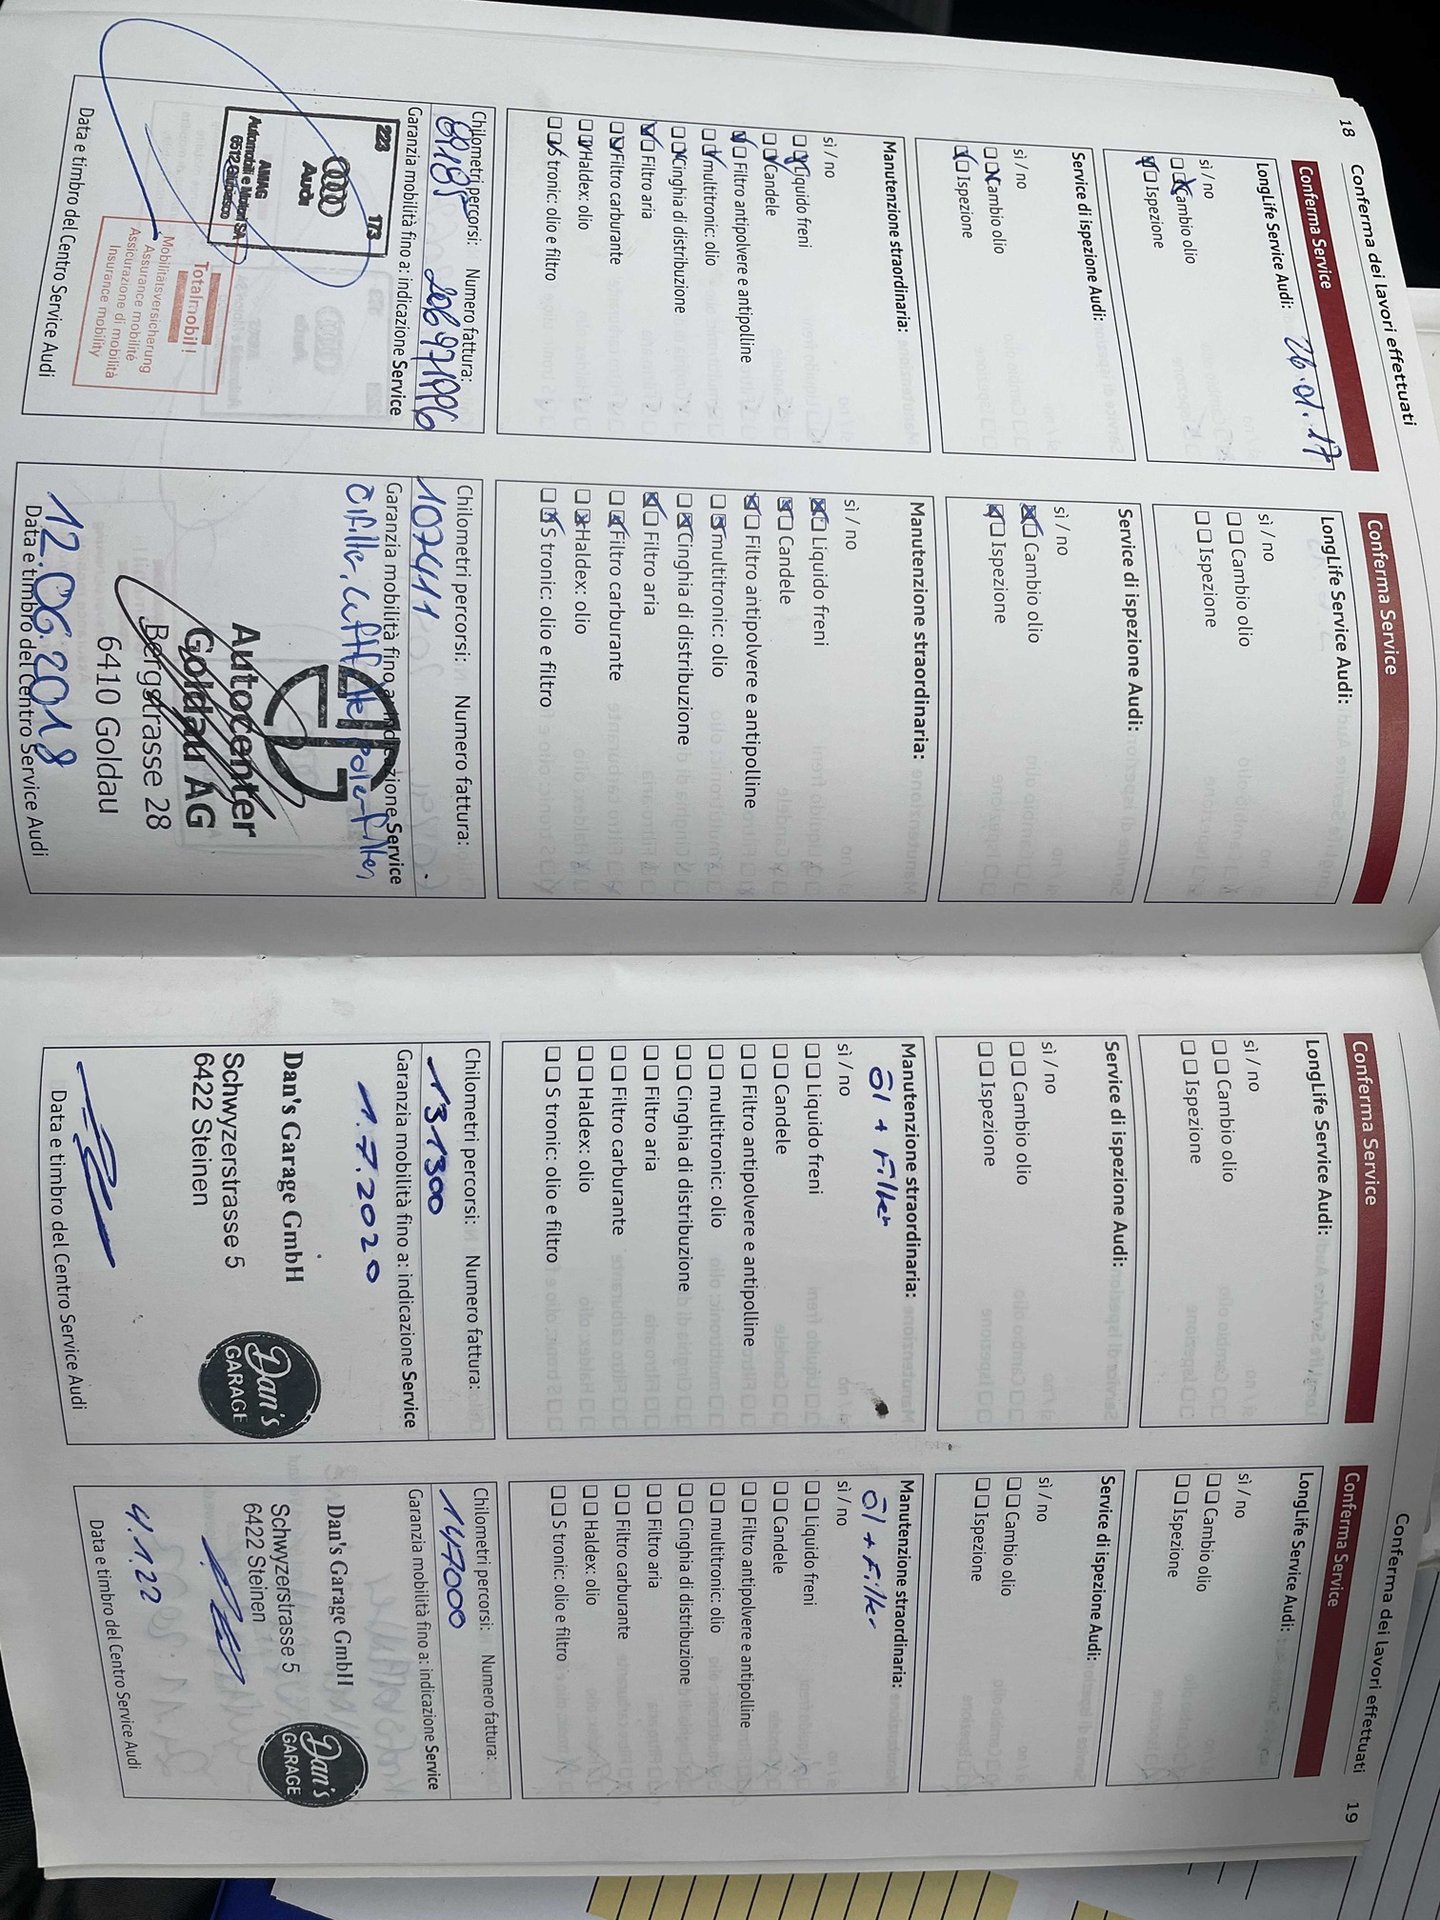 18
Conferma dei lavori effettuati
Conferma Service
LongLife Service Audi:
26.01.17
sì / no
Cambio olio
Ispezione
Service di ispezione Audi:
sì / no
Cambio olio
Ispezione
Manutenzione straordinaria:
sì / no
Liquido freni
Candele
Filtro antipolvere e antipolline
multitronic: olio
Cinghia di distribuzione
Filtro aria
Filtro carburante
Haldex: olio
S tronic: olio e filtro
Chilometri percorsi: Numero fattura:
Garanzia mobilità fino a: indicazione Service
223 173
Audi
AMAG
Automobili e Motori SA
6512 Giubiasco
Totalmobil!
Mobilitätsversicherung
Assurance mobilité
Assicurazione di mobilità
Insurance mobility
Data e timbro del Centro Service Audi
Conferma Service
LongLife Service Audi:
sì / no
Cambio olio
Ispezione
Service di ispezione Audi:
sì / no
Cambio olio
Ispezione
Manutenzione straordinaria:
sì / no
Liquido freni
Candele
Filtro antipolvere e antipolline
multitronic: olio
Cinghia di distribuzione
Filtro aria
Filtro carburante
Haldex: olio
S tronic: olio e filtro
Chilometri percorsi: Numero fattura:
107411
Garanzia mobilità fino a: indicazione Service
Autocenter
Goldau AG
Bergstrasse 28
6410 Goldau
12.06.2018
Data e timbro del Centro Service Audi
Conferma Service
LongLife Service Audi:
sì / no
Cambio olio
Ispezione
Service di ispezione Audi:
sì / no
Cambio olio
Ispezione
Manutenzione straordinaria:
Öl + Filter
sì / no
Liquido freni
Candele
Filtro antipolvere e antipolline
multitronic: olio
Cinghia di distribuzione
Filtro aria
Filtro carburante
Haldex: olio
S tronic: olio e filtro
Chilometri percorsi: Numero fattura:
131300
Garanzia mobilità fino a: indicazione Service
1.7.2020
Dan's Garage GmbH
Schwyzerstrasse 5
6422 Steinen
Dan's
GARAGE
Data e timbro del Centro Service Audi
Conferma dei lavori effettuati
19
Conferma Service
LongLife Service Audi:
sì / no
Cambio olio
Ispezione
Service di ispezione Audi:
sì / no
Cambio olio
Ispezione
Manutenzione straordinaria:
Öl + Filter
sì / no
Liquido freni
Candele
Filtro antipolvere e antipolline
multitronic: olio
Cinghia di distribuzione
Filtro aria
Filtro carburante
Haldex: olio
S tronic: olio e filtro
Chilometri percorsi: Numero fattura:
147000
Garanzia mobilità fino a: indicazione Service
Dan's Garage GmbH
Schwyzerstrasse 5
6422 Steinen
Dan's
GARAGE
4.1.22
Data e timbro del Centro Service Audi